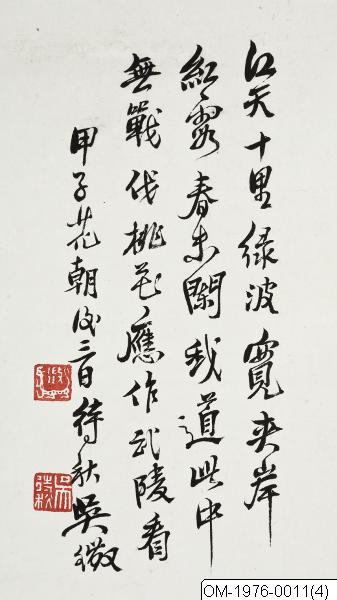 江天十里綠波寬夾岸
紅霞春未闌我道此中
無戰伐桃花應作武陵看
甲子花朝後三日待秋吳徵
OM-1976-0011(4)